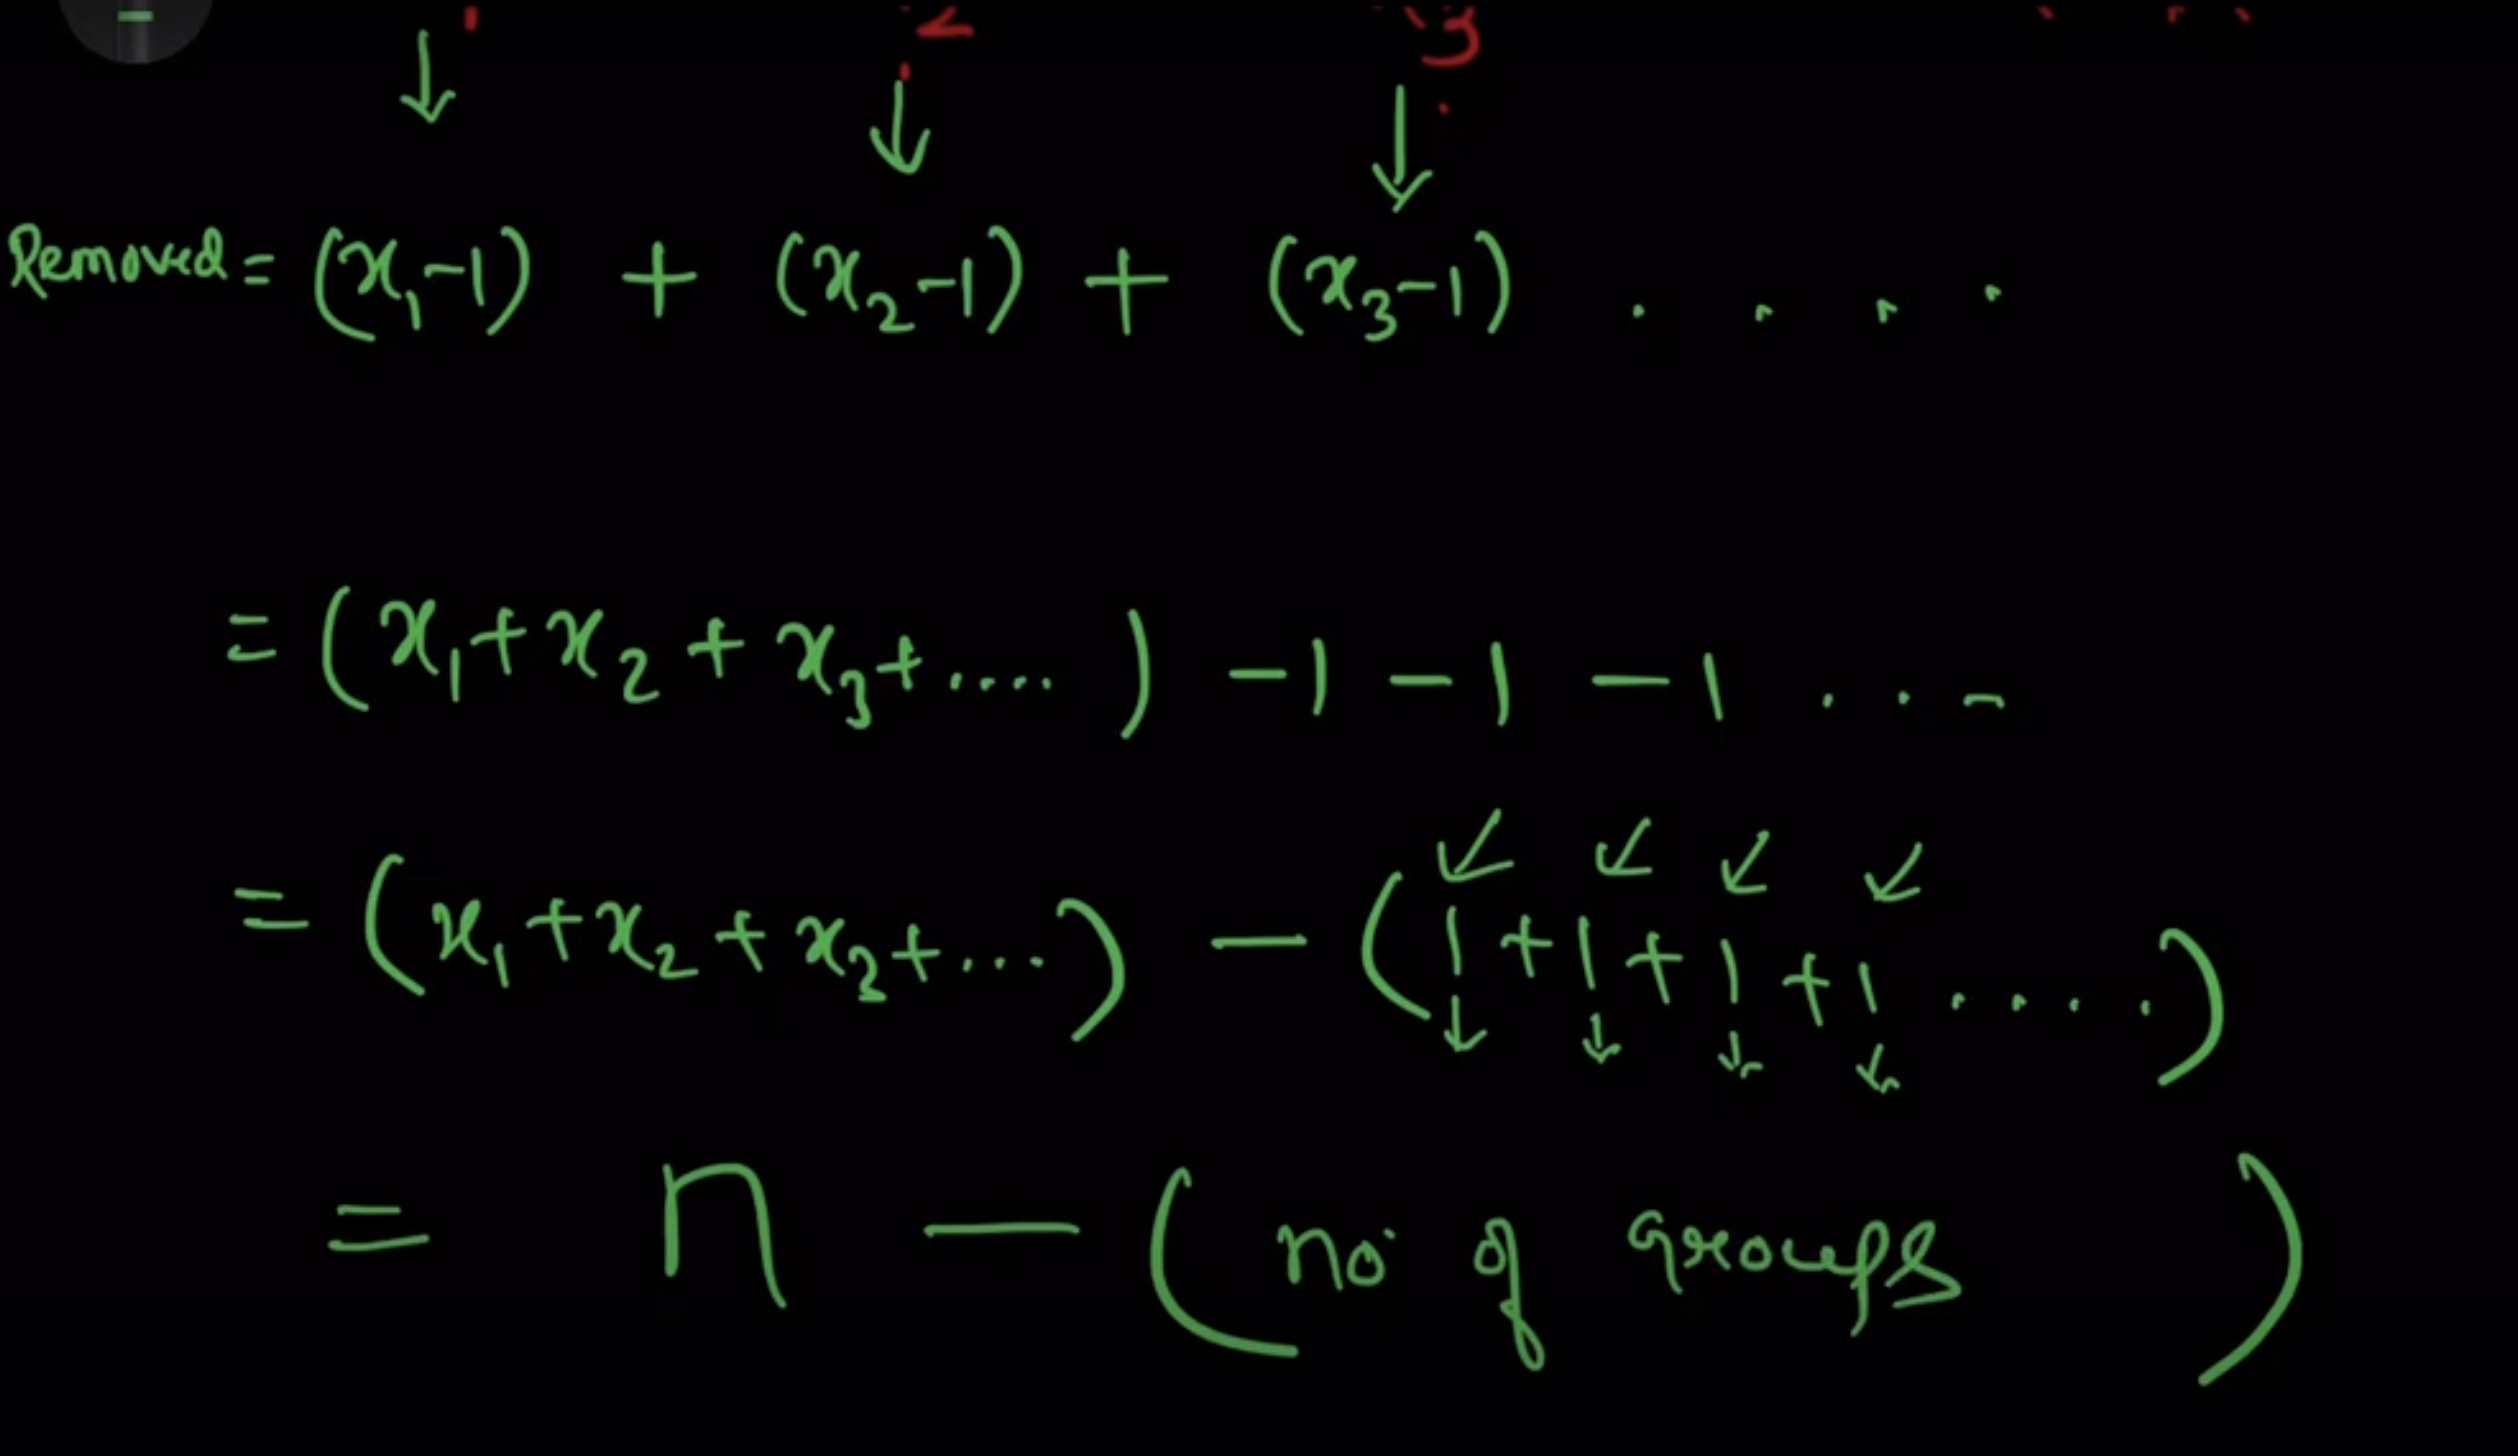 2 3
Removed = (x₁-1) + (x₂-1) + (x₃-1) . . . .
= (x₁+x₂+x₃+....) -1-1-1 ...
= (x₁+x₂+x₃+...) - (1+1+1+1 ....)
= n - (no of groups)